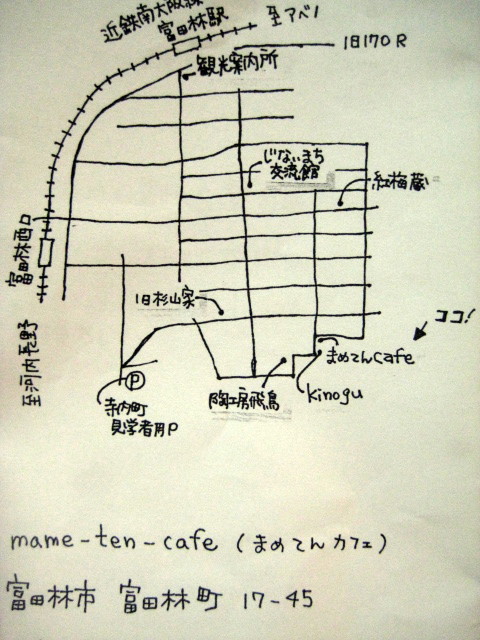 近鉄南大阪線
富田林駅
至アベノ
旧170R
観光案内所
じないまち
交流館
紅梅蔵
富田林西口
旧杉山家
ココ!
至河内長野
まめてんcafe
P
陶工房飛鳥
kinogu
寺内町
見学者用P
mame-ten-cafe (まめてんカフェ)
富田林市 富田林町 17-45